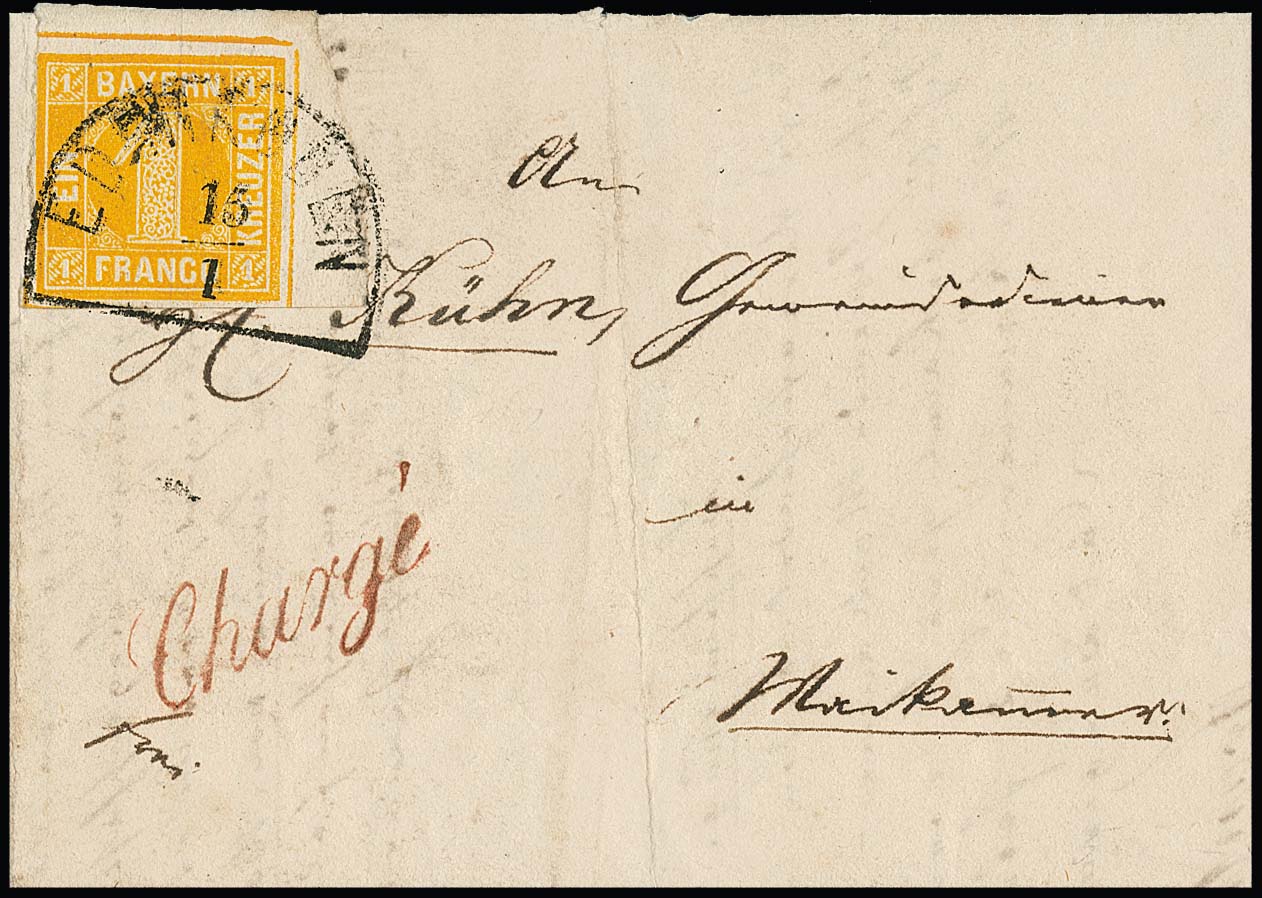 1 BAYERN 1
EIN
KREUZER
1 FRANCO 1
EDENKOBEN
15
1
An
Kühn, Gemeindediener
in
Maikam̅er.
Chargé